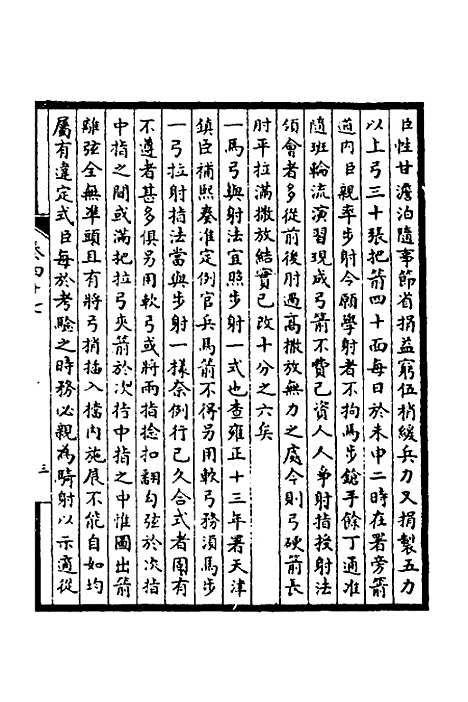 臣性甘澹泊隨事節省捐益窮伍稍緩兵力又捐製五力
以上弓三十張把箭四十面每日於未申二時在署旁箭
道内臣親率步射今願學射者不拘馬步鎗手餘丁通准
隨班輪流演習現成弓箭不費己資人人爭射指授射法
領會者多從前後肘過高撒放無力之處今則弓硬箭長
肘平拉滿撒放結實已改十分之六矣
一馬弓與射法宜照步射一式也查雍正十三年署天津
鎮臣補熙奏准定例官兵馬箭不得另用軟弓務須馬步
一弓拉射指法當與步射一樣奈例行已久合式者固有
不遵者甚多俱另用軟弓或將兩指捻扣翻勾弦於次指
中指之間或滿把拉弓夾箭於次指中指之中惟圖出箭
離弦全無準頭且有將弓梢插入襠内施展不能自如均
屬有違定式臣每於考驗之時務必親為騎射以示適從
卷四十七
三